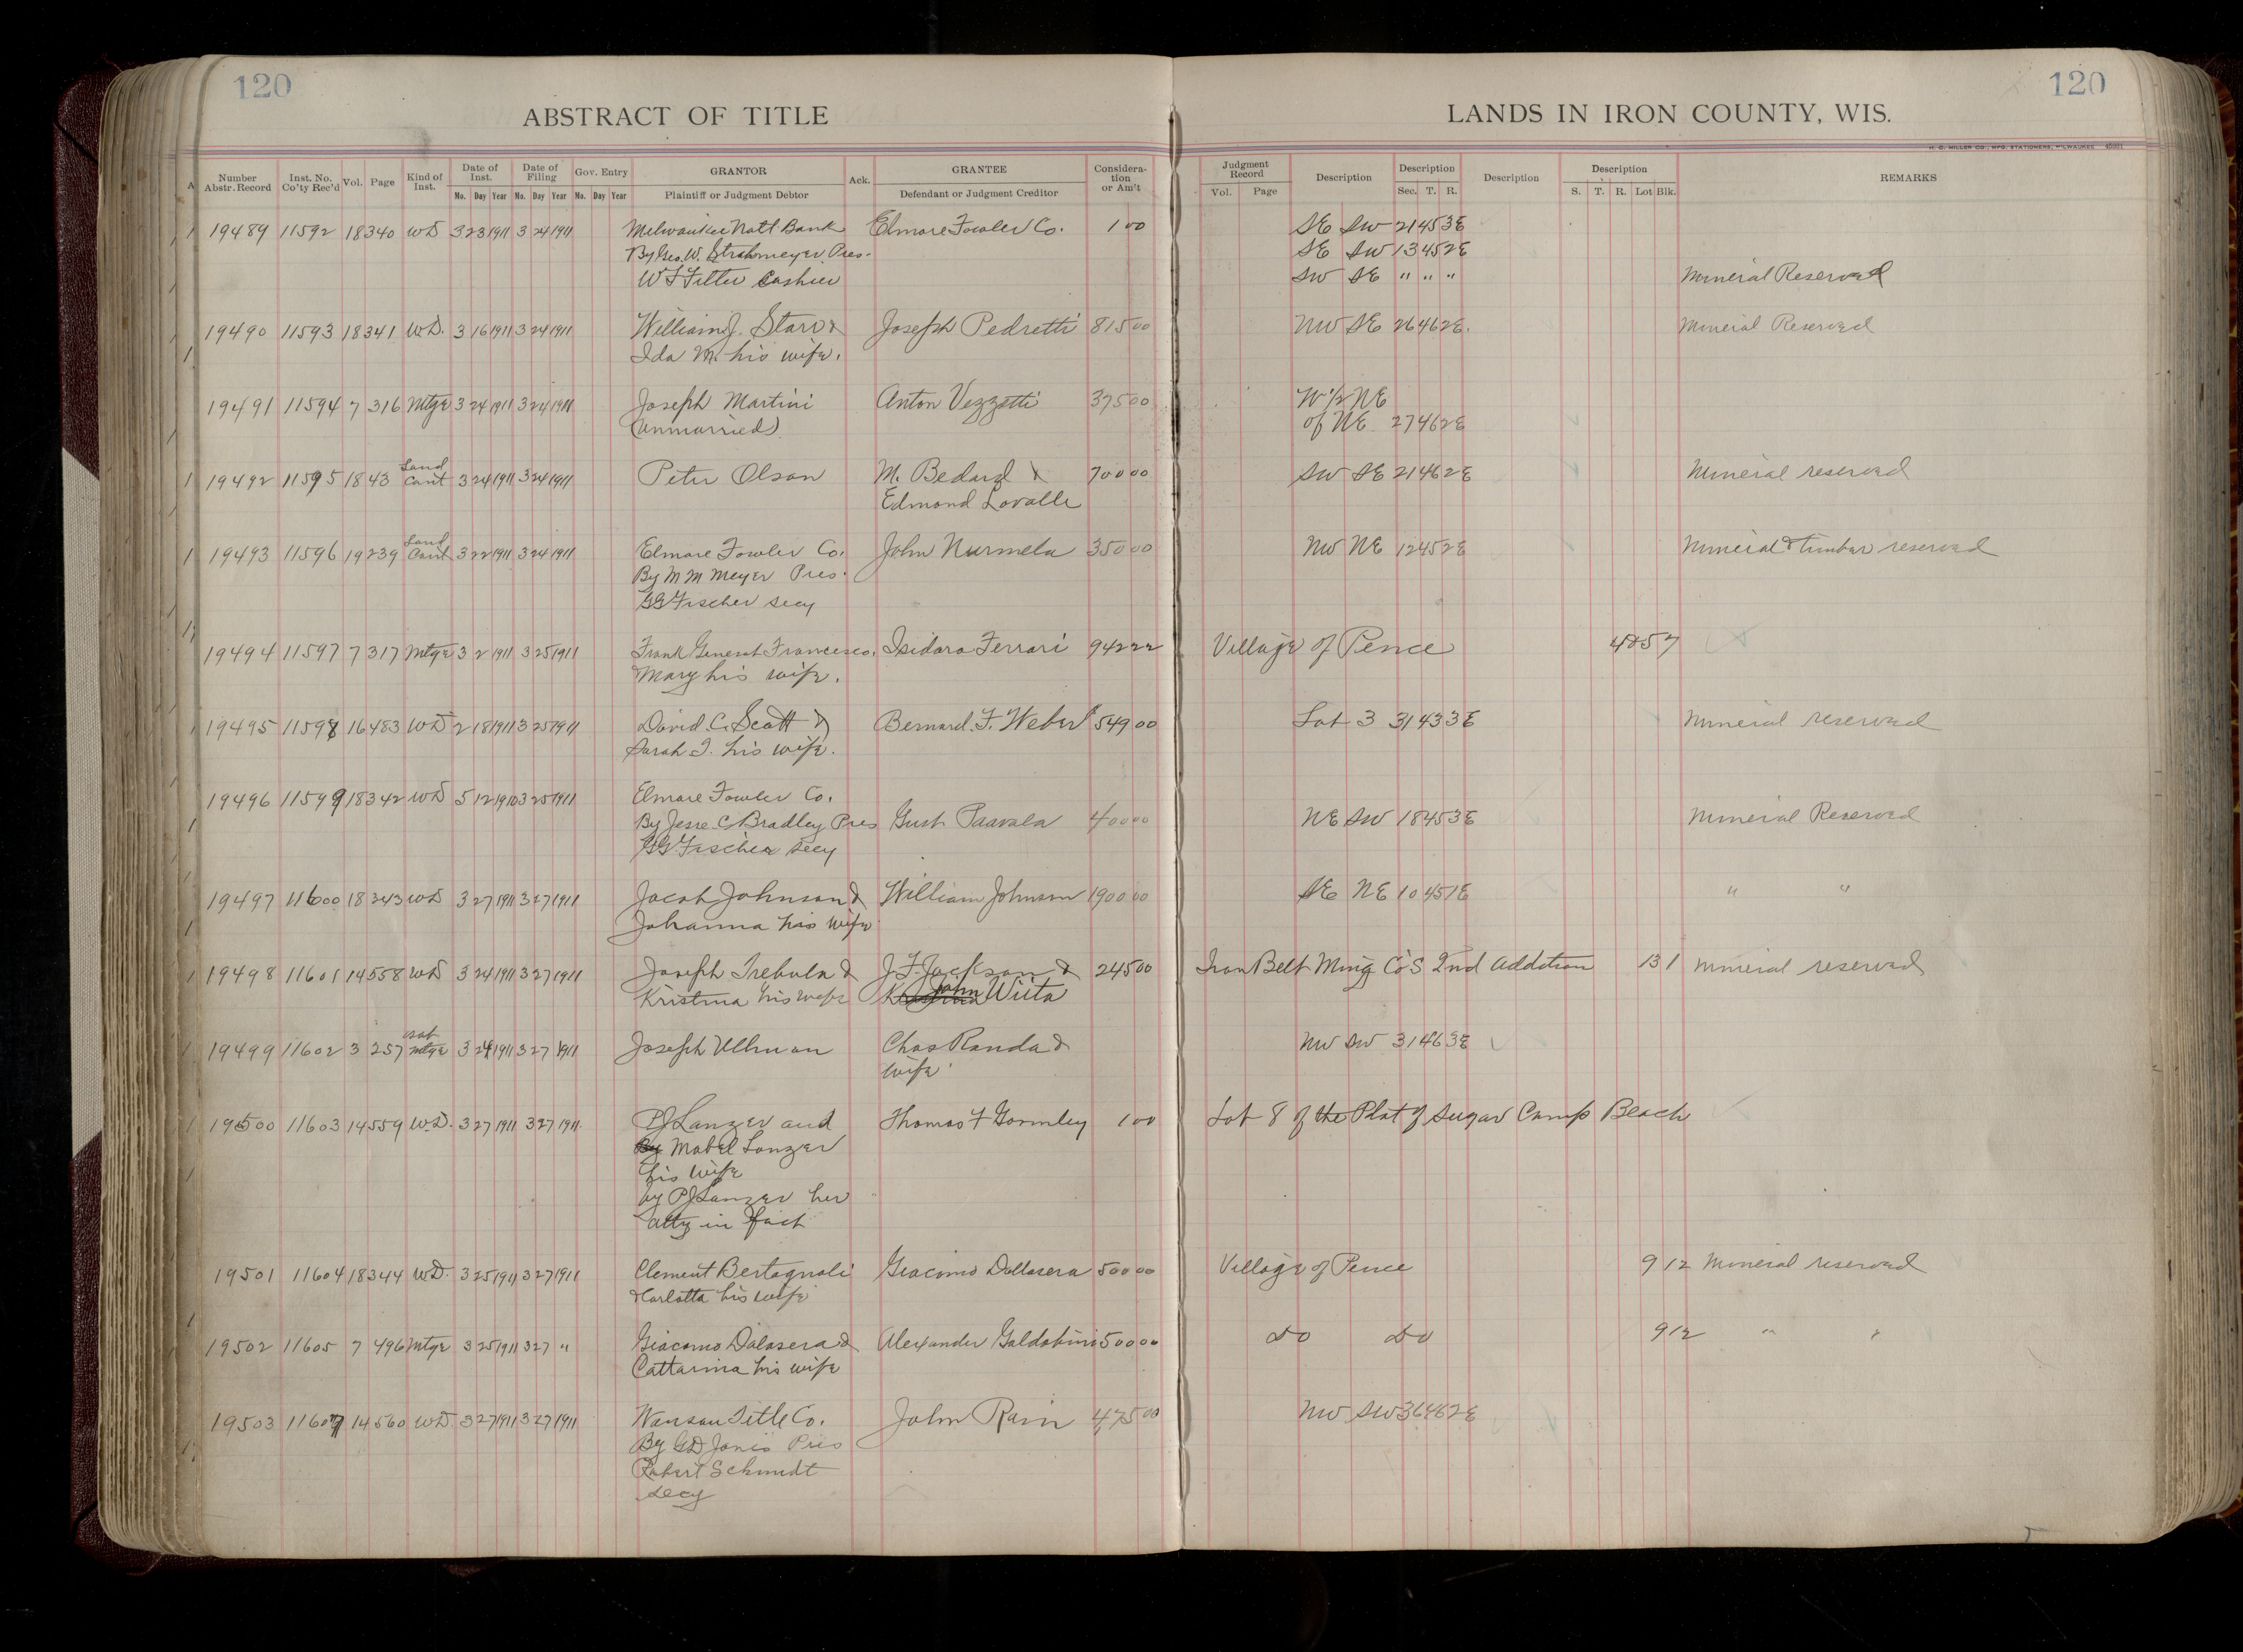 120
120
ABSTRACT OF TITLE
LANDS IN IRON COUNTY, WIS.
H. C. MILLER CO., MFG. STATIONERS, MILWAUKEE
Number Abstr. Record Inst. No. Co'ty Rec'd Vol. Page Kind of Inst. Date of Inst. Date of Filing Gov. Entry GRANTOR Ack. GRANTEE Consideration or Am't Judgment Record Description Description Description Description REMARKS
Mo. Day Year Mo. Day Year Mo. Day Year Plaintiff or Judgment Debtor Defendant or Judgment Creditor Vol. Page Sec. T. R. S. T. R. Lot Blk.
19489 11592 18 340 WD 3 23 1911 3 24 1911 Milwaukee Natl Bank Elmore Fowler Co. 1 00 SE SW 21 45 3E
By Geo. W. Strohmeyer Pres. SE SW 13 45 2E
W F Filter Cashier SW SE " " " Mineral Reserved
19490 11593 18 341 WD. 3 16 1911 3 24 1911 William J. Starr & Joseph Pedretti 815 00 NW SE 26 46 2E. Mineral Reserved
Ida M. his wife.
19491 11594 7 316 Mtge 3 24 1911 3 24 1911 Joseph Martini Anton Vezzetti 375 00 W 1/2 NE
(unmarried) of NE 27 46 2E
19492 11595 18 43 Land Cont 3 24 1911 3 24 1911 Peter Olson M. Bedard & 700 00 SW SE 21 46 2E Mineral reserved
Edmond Lovalle
19493 11596 19 239 Land Cont 3 22 1911 3 24 1911 Elmore Fowler Co. John Nurmela 350 00 NW NE 12 45 2E Mineral & timber reserved
By M M Meyer Pres.
GG Fischer Secy
19494 11597 7 317 Mtge 3 2 1911 3 25 1911 Frank General Francesco, Isidora Ferrari 942 22 Village of Pence 4&5 7
& Mary his wife.
19495 11598 16 483 WD 2 18 1911 3 25 1911 David C. Scott & Bernard F. Weber 549 00 Lot 3 31 43 3E Mineral reserved
Sarah I. his wife.
19496 11599 18 342 WD 5 12 1910 3 25 1911 Elmore Fowler Co.
By Jesse C Bradley Pres Gust Paavala 400 00 NE SW 18 45 3E Mineral Reserved
GG Fischer Secy
19497 11600 18 343 WD 3 27 1911 3 27 1911 Jacob Johnson & William Johnson 1900 00 SE NE 10 45 1E " "
Johanna his wife
19498 11601 14 558 WD 3 24 1911 3 27 1911 Joseph Trebula & J. F. Jackson & 245 00 Iron Belt Ming Co's 2nd Addition 13 1 Mineral reserved
Kristina his wife John Wiita
19499 11602 3 257 Sat Mtge 3 24 1911 3 27 1911 Joseph Ullman Chas Randa & NW SW 31 46 3E
wife
19500 11603 14 559 W.D. 3 27 1911 3 27 1911 PJ Lanzer and Thomas F Gormley 1 00 Lot 8 of the Plat of Sugar Camp Beach
By Mabel Lanzer
his wife
by PJ Lanzer her
Atty in fact
19501 11604 18 344 WD. 3 25 1911 3 27 1911 Clement Bertagnoli Giacomo Dallasera 500 00 Village of Pence 9 12 Mineral reserved
& Carlotta his wife
19502 11605 7 496 Mtge 3 25 1911 3 27 " Giacomo Dalasera & Alexander Galdabini 500 00 do do 9 12 " "
Cattarina his wife
19503 11607 14 560 WD. 3 27 1911 3 27 1911 Wausau Title Co. John Rain 475 00 NW SW 36 46 2E
By GD Jones Pres
Robert Schmidt
Secy